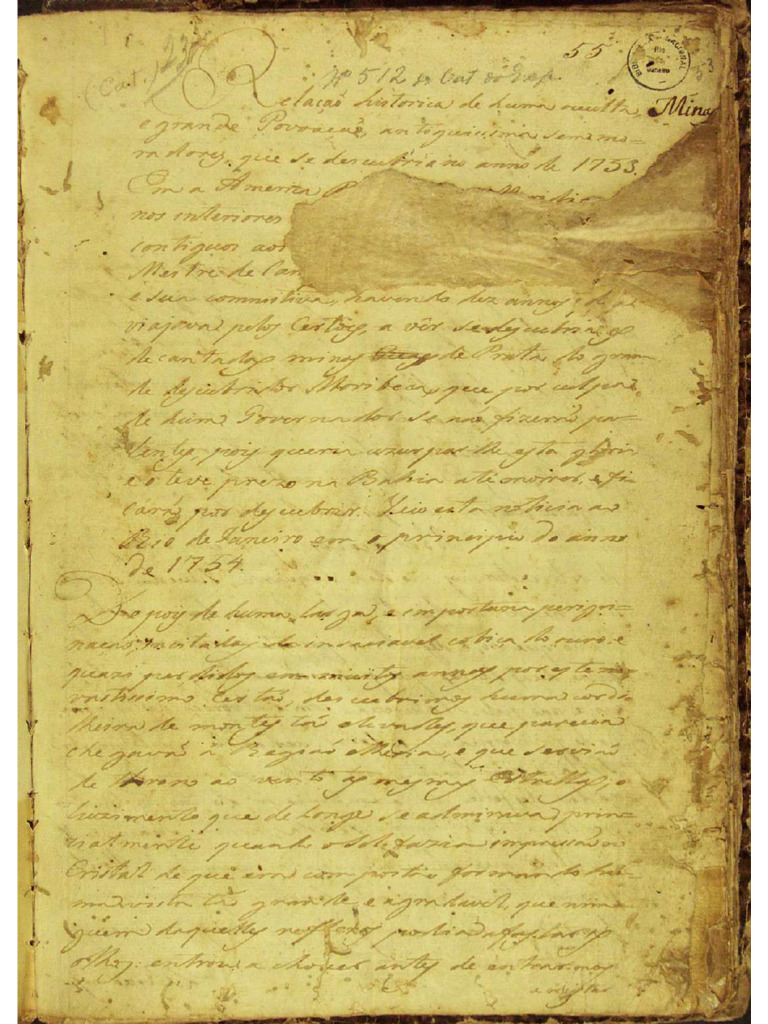 55
(Cat.)
BIBLIOTHECA NACIONAL RIO DE JANEIRO
Nº 512 do Cat. da Exp.
Minas
Relaçaõ historica de huma occulta,
e grande Povoaçaõ, antiquissima sem mo-
radores, que se descubriu no anno de 1753.
Em a America
nos interiores
contiguos aos
Mestre de Can
e sua commitiva, havendo dez annos, q
viajava pelos Certões, a vêr se descubria as
decantadas minas de Prata do gran
de descubridor Moribeca, que por culpa
de hum Governador se naõ fizeraõ pa-
tentes, pois queria uzurparlhe esta gloria
e o teve prezo na Bahia até morrer, e fi
caraõ por descubrir. Veio esta noticia ao
Rio de Janeiro em o principio do anno
de 1754.
Depois de huma larga, e importuna perigri-
naçaõ, incitados da insaciavel cobiça do ouro, e
quazi perdidos em muitos annos por este
vastissimo Certaõ, descubrimos huma cordi-
lheira de montes taõ elevados, que parecia
chegavaõ á Regiaõ etheria, e que serviaõ
de throno ao vento, ás mesmas Estrellas; o
luzimento que de longe se admirava, prin-
cipalmente quando o Sol fazia impressaõ ao
Cristal de que era composta, formando hu-
ma vista taõ grande, e agradavel, que nin-
guem daquelles reflexos podia afastar os
olhos: entrou a chover antes de entrarmos
a registar